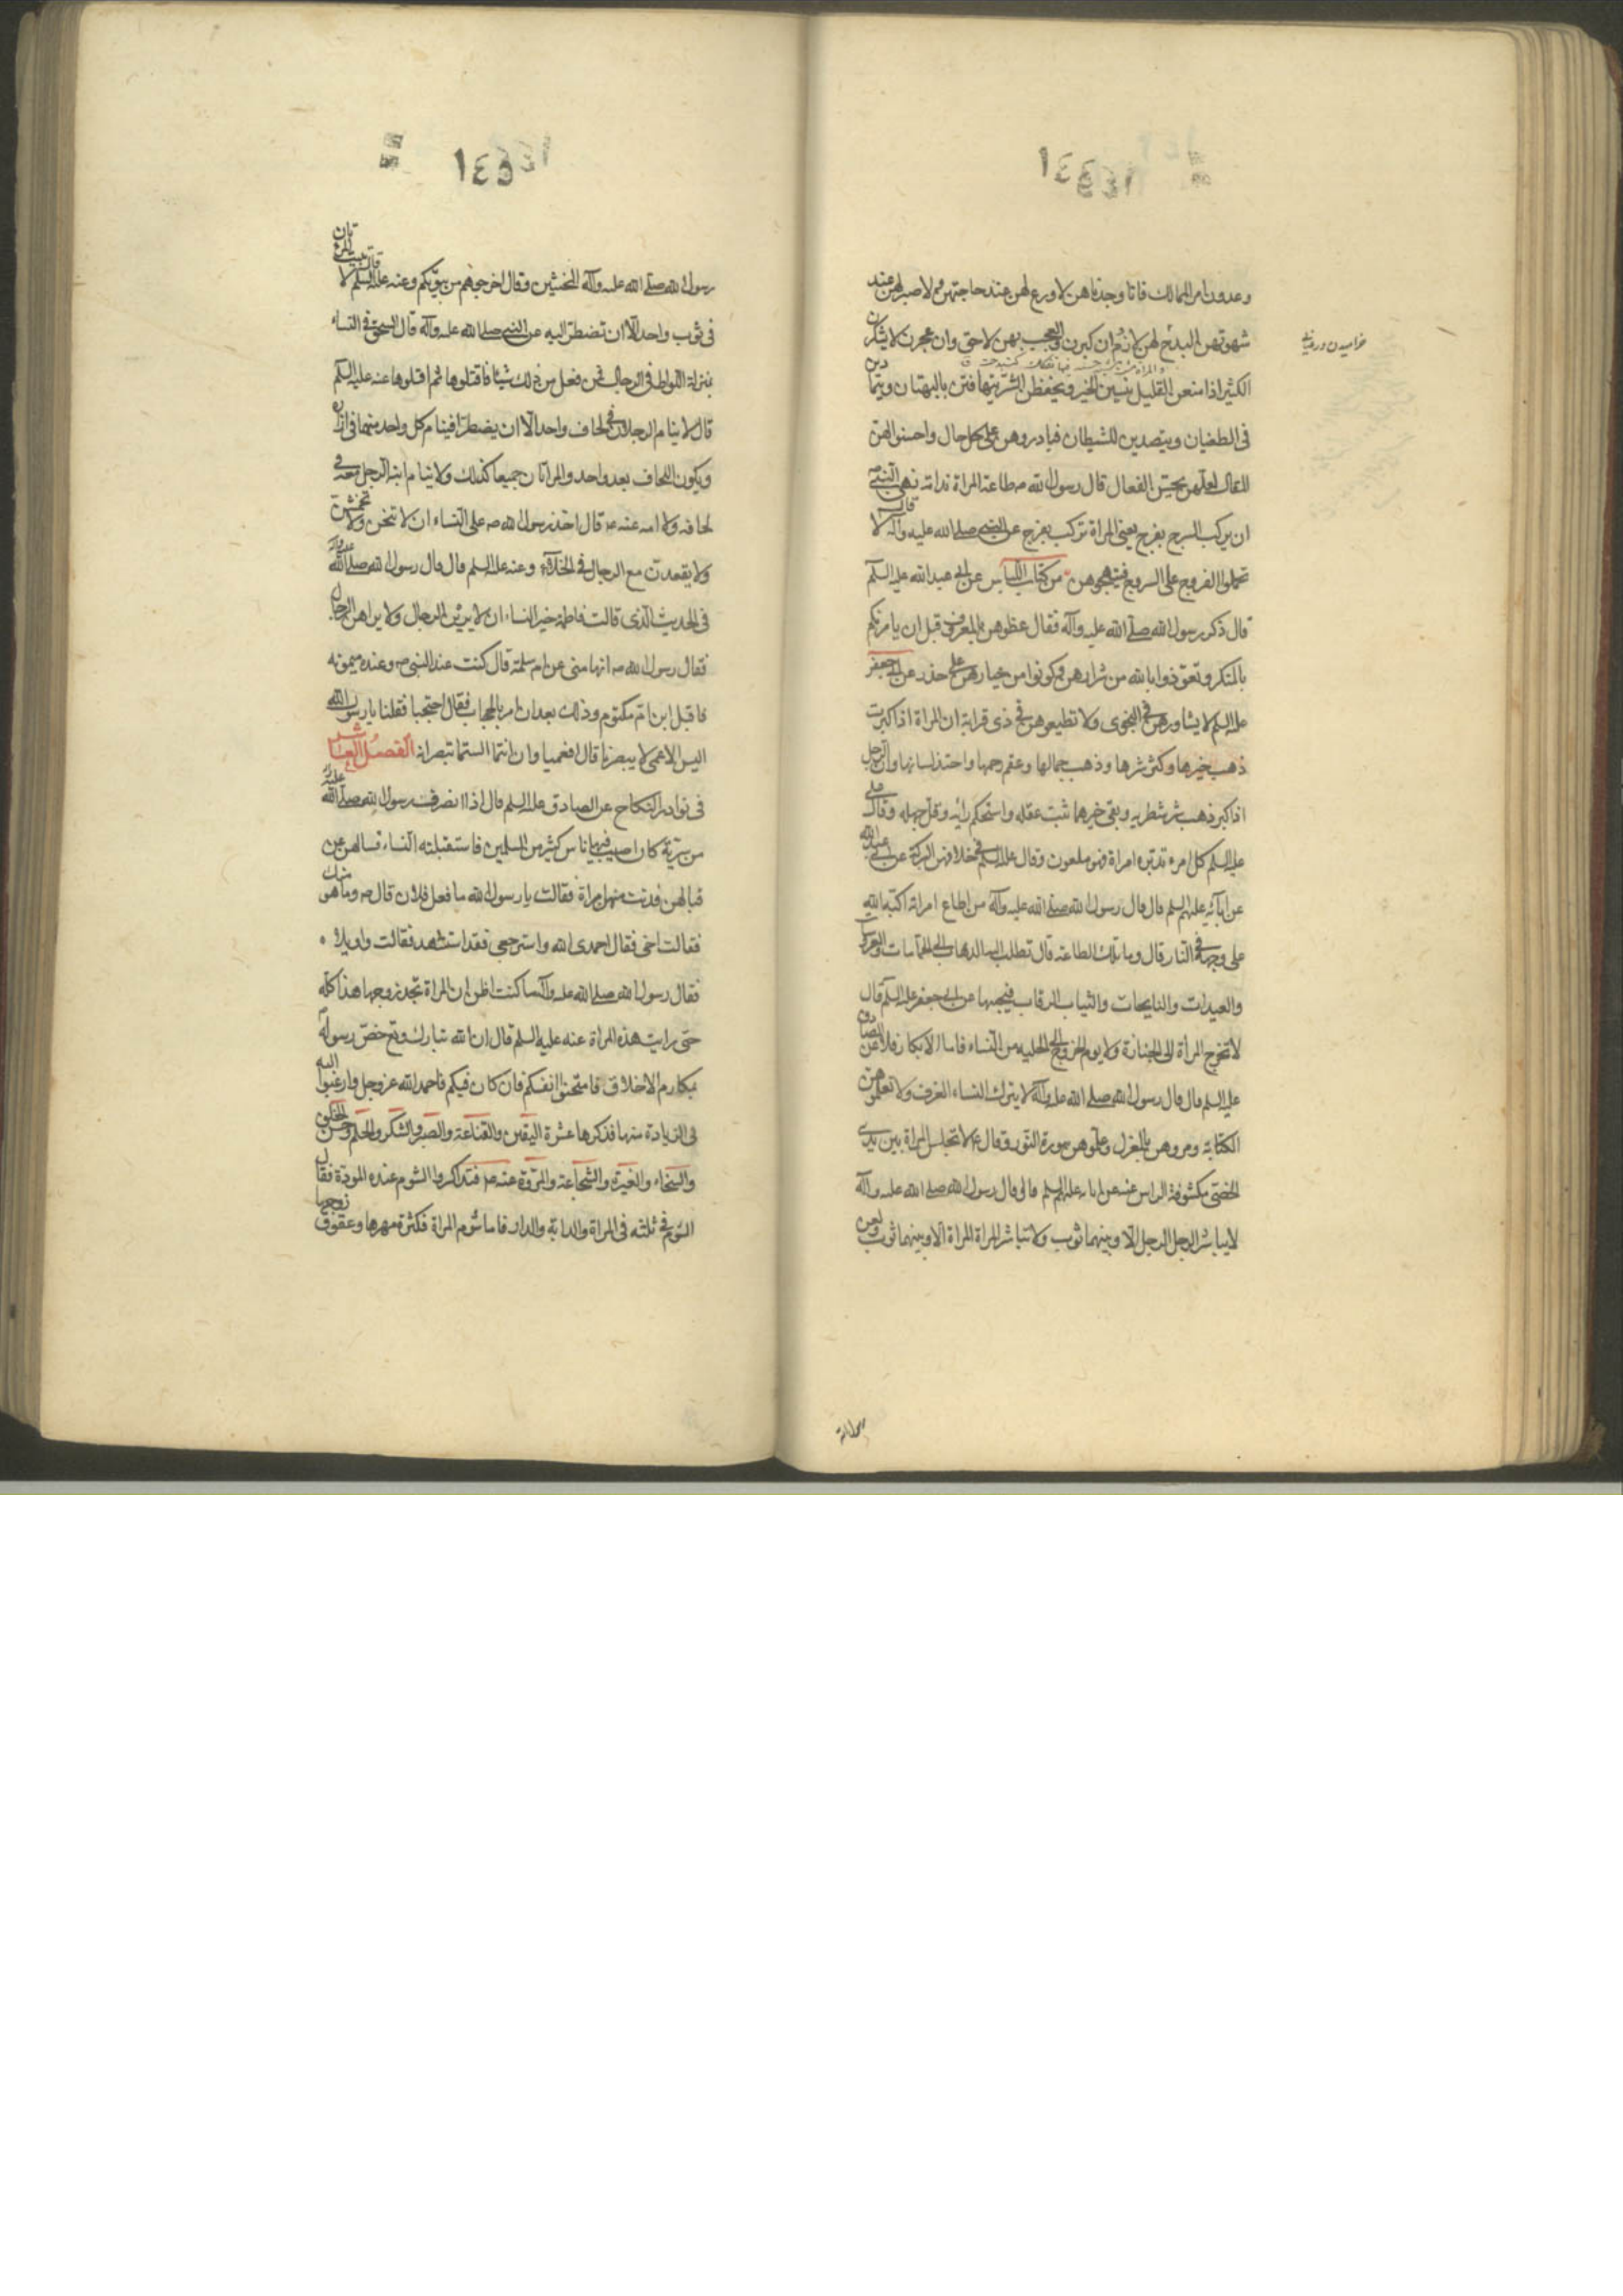 ١٤٤
وعدون امر الممالك فانا وجدناهن لا ورع لهن عند حاجتهن ولا صبر لهن عند
شهوتهن البذخ لهن لازم وان كبرن والعجب بهن لاحق وان عجزن لا يشكرن
خراميدن
الكثير اذا منعن القليل ينسين الخير ويحفظن الشر يتهافتن بالبهتان ويتمادين
فى الطغيان ويتصدين للشيطان فداروهن على كل حال واحسنوا لهن
المقال لعلهن يحسن الفعال قال رسول الله ص طاعة المراة ندامة نهى النبى ص
ان يركب السرج بفرج يعنى المراة تركب بفرج عن النبى صلى الله عليه وآله قال لا
تحملوا الفروج على السروج فتهيجوهن من كتاب اللباس عن ابى عبد الله عليه السلم
قال ذكر رسول الله صلى الله عليه وآله فقال عظوهن بالمعروف قبل ان يامرنكم
بالمنكر وتعوذوا بالله من شرارهن وكونوا من خيارهن على حذر عن ابى جعفر
عليه السلم لا يشاورهن فى النجوى ولا تطيعوهن فى ذى قرابة ان المراة اذا كبرت
ذهب خيرها وكثر شرها وذهب جمالها وعقم رحمها واحتد لسانها وان الرجل
اذا كبر ذهب شر شطريه وبقى خيرهما ثبت عقله واستحكم رائه وقل جهله وقال على
عليه السلم كل امرء تدبره امراة فهو ملعون وقال عليه السلم فى خلافهن البركة عن ابى عبد الله
عن ابائه عليهم السلم قال قال رسول الله صلى الله عليه وآله من اطاع امراته اكبه الله
على وجهه فى النار قال وما تلك الطاعة قال تطلب اليه الذهاب الى الحمامات والعرسات
والعيدات والنايحات والثياب الرقاب فيجيبها عن ابى جعفر عليه السلم قال
لا تخرج المرأة الى الجنازة ولا يوم الخروج الى الحلبه من النساء فاما الابكار فلا عن الصادق
عليه السلم قال قال رسول الله صلى الله عليه وآله لا ينزل النساء الغرف ولا تعلموهن
الكتابة ومروهن بالمغزل وعلموهن سورة النور وقال ع لا تجلس المراة بين يدى
الخصى مكشوفة الراس عنه عن ابائه عليهم السلم قال قال رسول الله صلى الله عليه وآله
لا يباشر الرجل الرجل الا وبينهما ثوب ولا تباشر المراة المراة الا وبينهما ثوب ولعن
١٤٥
رسول الله صلى الله عليه وآله المخنثين وقال اخرجوهم من بيوتكم وعنه عليه السلم قال لا تبيت المرءتان
فى ثوب واحد الا ان تضطر اليه عن النبى صلى الله عليه وآله قال السحق فى النساء
بمنزلة اللواط فى الرجال فمن فعل من ذلك شيئا فاقتلوها ثم اقتلوها عنه عليه السلم
قال لا ينام الرجلان فى لحاف واحد الا ان يضطرا فينام كل واحد منهما فى ازاره
ويكون اللحاف بعد واحد والمراتان جميعا كذلك ولا ينام ابنة الرجل معه فى
لحافه ولا امه عنه ع قال اخذ رسول الله ص على النساء ان لا تنحن ولا تخمشن
ولا يقعدن مع الرجال فى الخلاء وعنه عليه السلم قال قال رسول الله صلى الله عليه وآله
فى الحديث الذى قالت فاطمة خير النساء ان لا يرين الرجال ولا يراهن الرجال
فقال رسول الله ص انها منى عن ام سلمة قال كنت عند النبى ص وعنده ميمونه
فاقبل ابن ام مكتوم وذلك بعد ان امر بالحجاب فقال احتجبا فقلنا يا رسول الله
اليس الاعمى لا يبصرنا قال افعميا وان انتما الستما تبصرانه الفصل العاشر
فى نوادر النكاح عن الصادق عليه السلم قال اذا انصرفت رسول الله صلى الله عليه وآله
من سرية كان اصيب فيها ناس كثير من المسلمين فاستقبلته النساء فسالهن عن
قتالهن فدنت منهم امراة فقالت يا رسول الله ما فعل فلان قال ص وما هو منك
فقالت اخى فقال احمدى الله واسترجعى فقد استشهد فقالت واويلاه
فقال رسول الله صلى الله عليه وآله ما كنت اظن ان المراة تجد بزوجها هذا كله
حتى رايت هذه المراة عنه عليه السلم قال ان الله تبارك وتع خص رسوله
بمكارم الاخلاق فامتحنوا انفسكم فان كان فيكم فاحمد الله عز وجل وارغبوا اليه
فى الزيادة منها فذكرها عشرة اليقين والقناعة والصبر والشكر والحلم وحسن الخلق
والسخاء والغيرة والشجاعة والمروة عنه ع فتذاكروا الشوم عنده فقال
الشوم فى ثلثه فى المراة والدابة والدار فاما شوم المراة فكثرة مهرها وعقوق زوجها